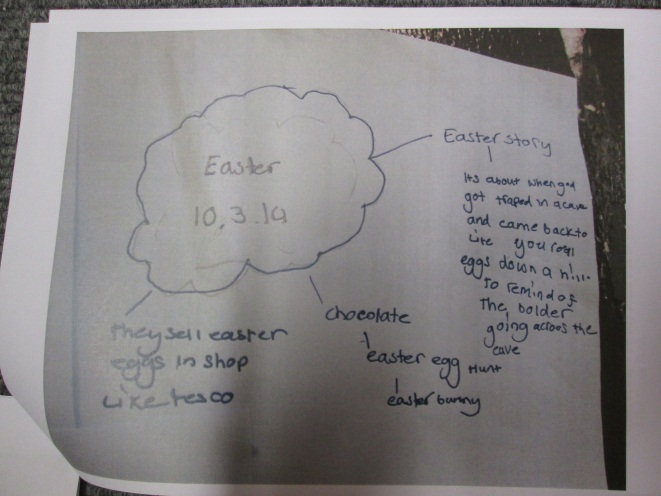 Easter
10,3.14
Easter story
Its about when god
got traped in a cave
and came back to
life you roll
eggs down a hill
to remind of
the bolder
going across the
cave
chocolate
easter egg Hunt
easter bunny
they sell easter
eggs in shop
Like tesco